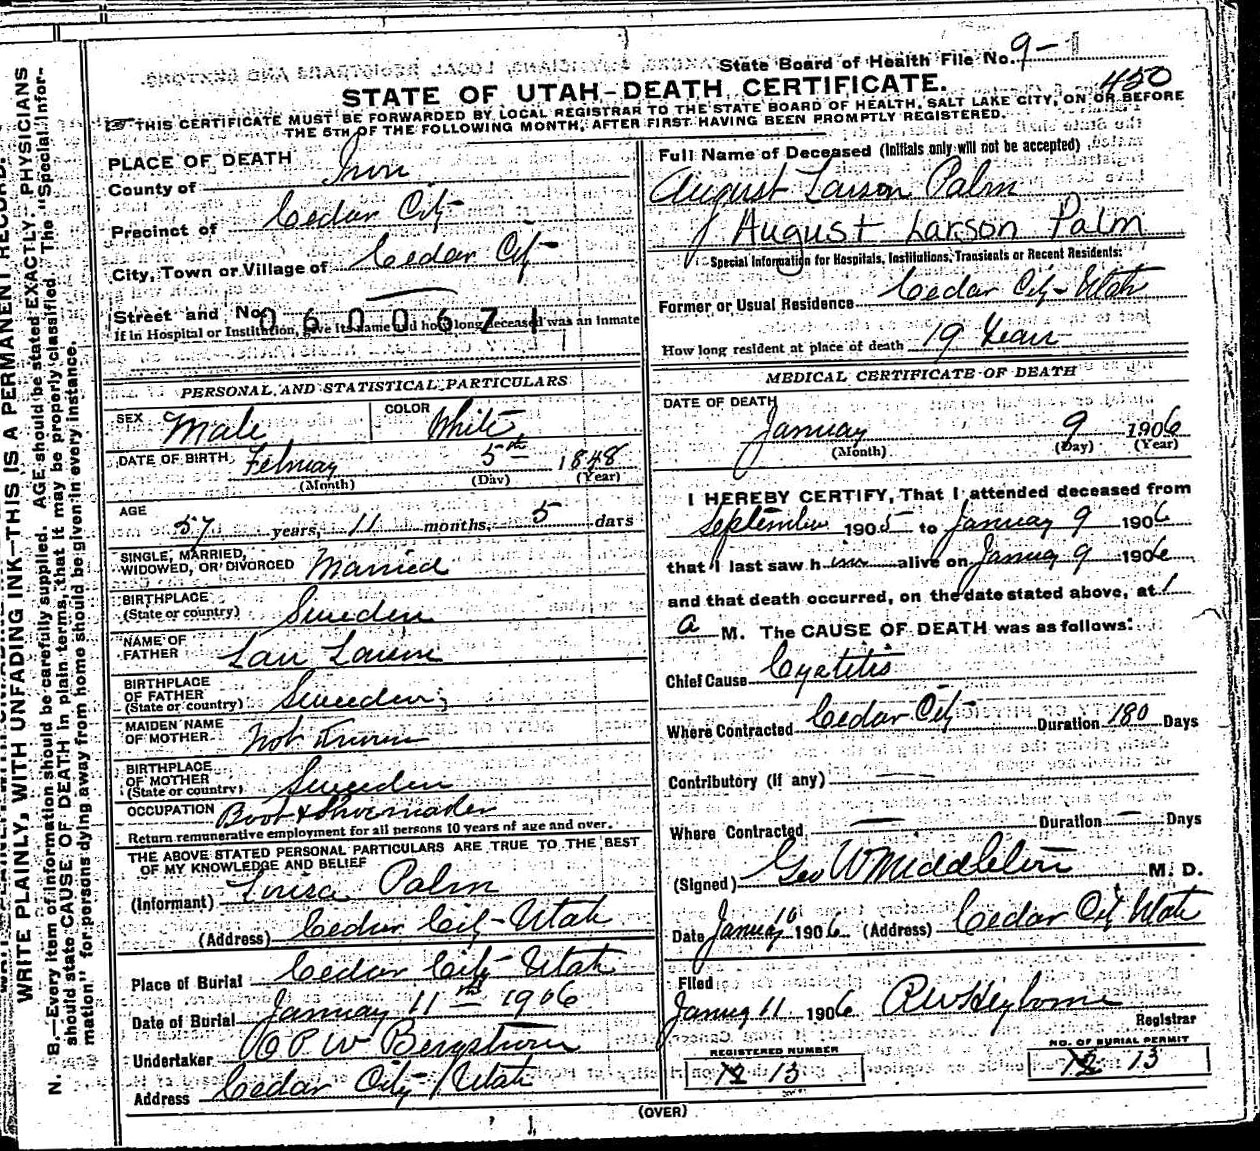 State Board of Health File No. 9-1
450
STATE OF UTAH-DEATH CERTIFICATE.
THIS CERTIFICATE MUST BE FORWARDED BY LOCAL REGISTRAR TO THE STATE BOARD OF HEALTH, SALT LAKE CITY, ON OR BEFORE
THE 5TH OF THE FOLLOWING MONTH, AFTER FIRST HAVING BEEN PROMPTLY REGISTERED.
WRITE PLAINLY, WITH UNFADING INK-THIS IS A PERMANENT RECORD.
N. B.-Every item of information should be carefully supplied. AGE should be stated EXACTLY. PHYSICIANS
should state CAUSE OF DEATH in plain terms, that it may be properly classified. The "Special Infor-
mation" for persons dying away from home should be given in every instance.
PLACE OF DEATH
County of Iron
Precinct of Cedar City
City, Town or Village of Cedar City
Street and No.
0600671
If in Hospital or Institution, give its name and how long deceased was an inmate
PERSONAL AND STATISTICAL PARTICULARS
SEX Male COLOR White
DATE OF BIRTH February 5th 1848
(Month) (Day) (Year)
AGE
57 years, 11 months, 5 days
SINGLE, MARRIED,
WIDOWED, OR DIVORCED Married
BIRTHPLACE
(State or country) Sweden
NAME OF
FATHER Lars Larson
BIRTHPLACE
OF FATHER
(State or country) Sweden
MAIDEN NAME
OF MOTHER Not Known
BIRTHPLACE
OF MOTHER
(State or country) Sweden
OCCUPATION Boot & Shoemaker
Return remunerative employment for all persons 10 years of age and over.
THE ABOVE STATED PERSONAL PARTICULARS ARE TRUE TO THE BEST
OF MY KNOWLEDGE AND BELIEF
(Informant) Louisa Palm
(Address) Cedar City-Utah
Place of Burial Cedar City Utah
Date of Burial January 11th 1906
Undertaker C P W Bergstrom
Address Cedar City Utah
Full Name of Deceased (Initials only will not be accepted)
August Larson Palm
August Larson Palm
Special Information for Hospitals, Institutions, Transients or Recent Residents:
Former or Usual Residence Cedar City-Utah
How long resident at place of death 19 Years
MEDICAL CERTIFICATE OF DEATH
DATE OF DEATH
January 9 1906
(Month) (Day) (Year)
I HEREBY CERTIFY, That I attended deceased from
September 1905 to January 9 1906
that I last saw him alive on January 9 1906
and that death occurred, on the date stated above, at 1
a M. The CAUSE OF DEATH was as follows:
Chief Cause Cystitis
Where Contracted Cedar City Duration 180 Days
Contributory (if any) —
Where Contracted — Duration — Days
(Signed) Geo W Middleton M. D.
Date January 10 1906 (Address) Cedar City Utah
Filed
January 11 1906
Registrar
REGISTERED NUMBER
12 13
NO. OF BURIAL PERMIT
12 13
(OVER)